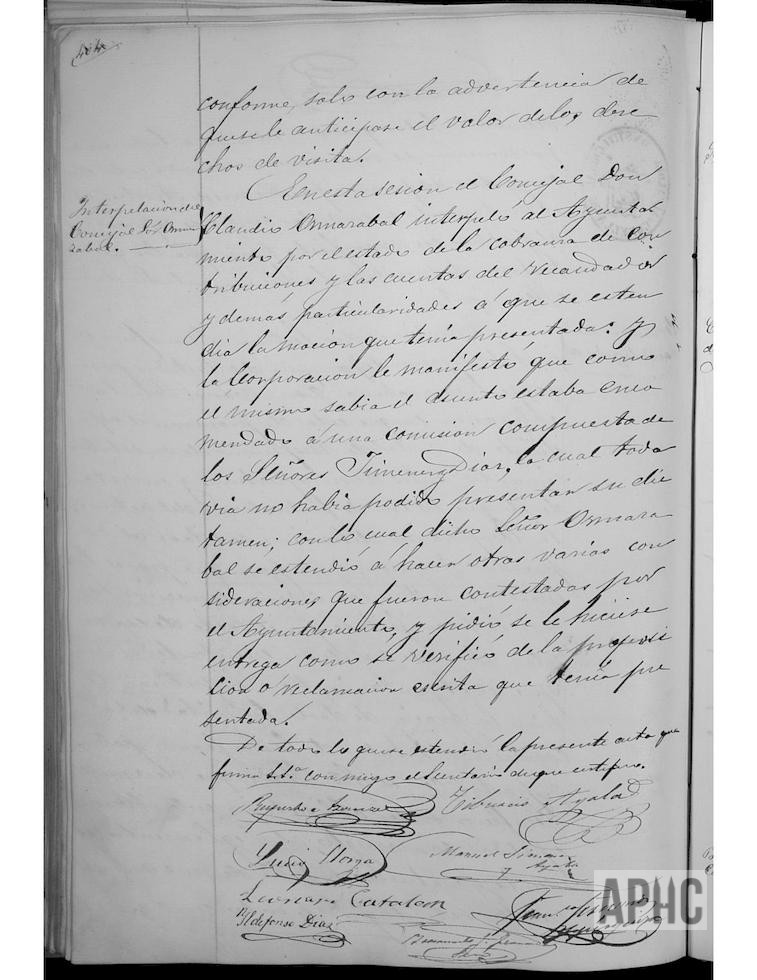 404
conforme, solo con la advertencia de
que se le anticipase el valor de los dere
chos de visita.
Interpelacion del
Concejal Sor Orma
zabal.
En esta sesion el Concejal Don
Claudio Ormazabal interpeló al Ayunta
miento por el estado de la cobranza de con
tribuciones y las cuentas del recaudador
y demás particularidades á que se esten
dia la mocion que tenia presentada: y
la Corporacion le manifestó que como
el mismo sabia el asunto estaba enco
mendado á una comision compuesta de
los Señores Jimenez y Diaz, la cual toda
via no habia podido presentar su dic
tamen; con lo cual dicho Señor Ormaza
bal se estendió á hacer otras varias con
sideraciones que fueron contestadas por
el Ayuntamiento, y pidió se le hiciese
entrega como se verificó de la proposi
cion ó reclamacion escrita que tenia pre
sentada.
De todo lo que se estendió la presente acta que
firma S.S.ª conmigo el Secretario de que certifico.
Tiburcio Ayala
Lucio
Manuel Jimenez
y Ayala
Leoncio Catalán
Yldefonso Diaz
APHC